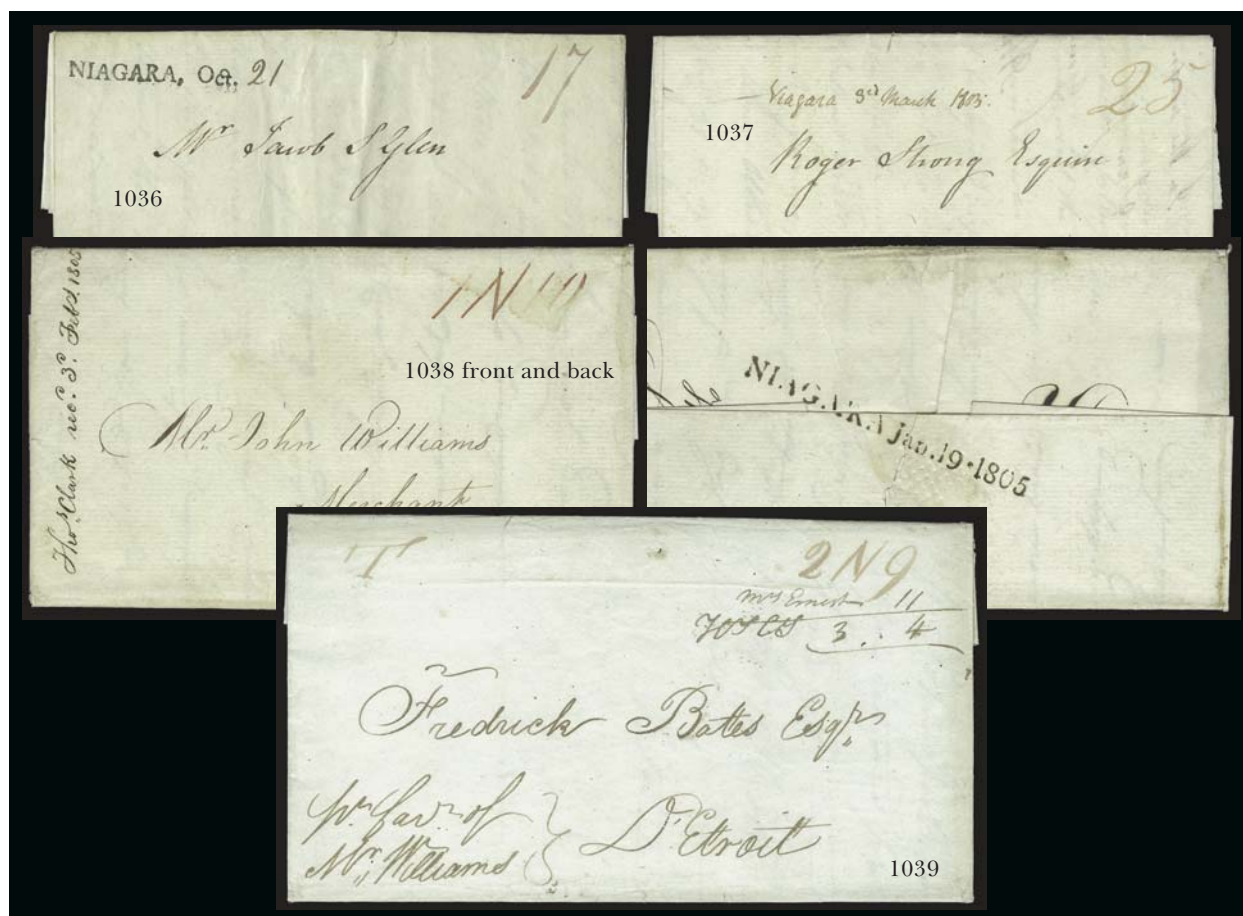 NIAGARA, Oct. 21
17
Mr Jacob S Glen
1036
Niagara 3rd March 1805.
25
1037
Roger Strong Esquire
Thos. Clark rec. 3d. Feb 1805
1N10
1038 front and back
Mr John Williams
Merchant
NIAGARA Jan. 19 • 1805
T
2N9
Mrs Ernest 11
3 .. 4
Fredrick Bates Esqr.
pr. favr of
Mr. Williams
D'Etroit
1039